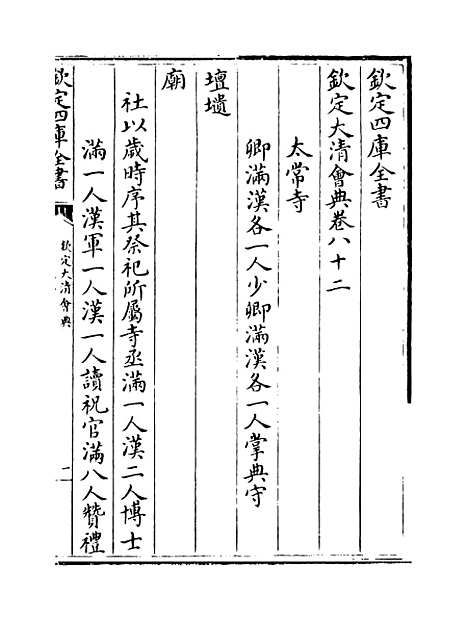 欽定四庫全書
欽定大清會典卷八十二
太常寺
卿滿漢各一人少卿滿漢各一人掌典守
壇壝
廟
社以歲時序其祭祀所屬寺丞滿一人漢二人博士
滿一人漢軍一人漢一人讀祝官滿八人贊禮
欽定四庫全書
欽定大清會典